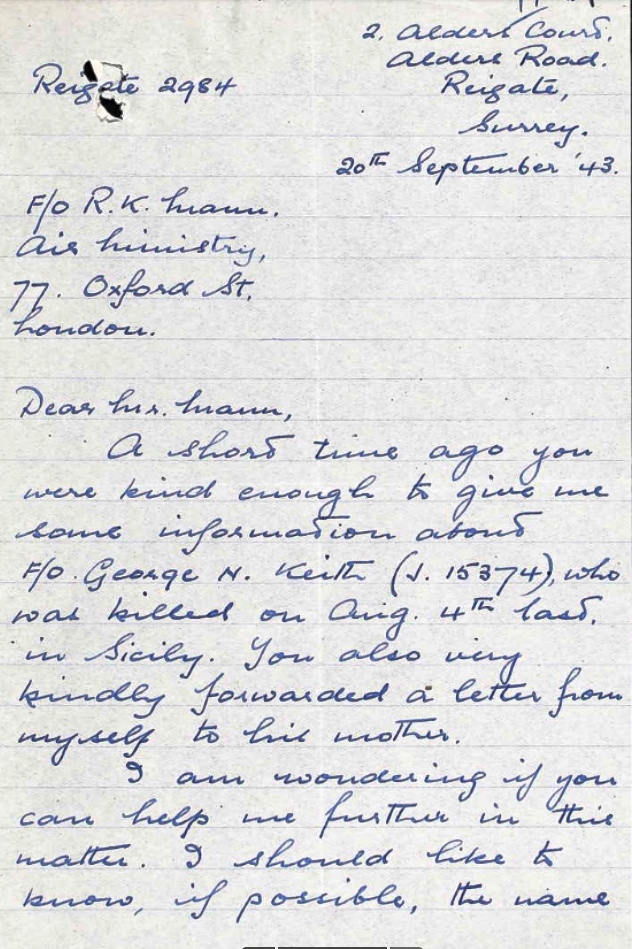 2. Alders Court,
Alders Road.
Reigate 2984
Reigate,
Surrey.
20th September '43.
F/o R.K. Mann.
Air Ministry,
77. Oxford St,
London.
Dear Mr. Mann,
A short time ago you
were kind enough to give me
some information about
F/o. George N. Keith (J. 15374), who
was killed on Aug. 4th last.
in Sicily. You also very
kindly forwarded a letter from
myself to his mother.
I am wondering if you
can help me further in this
matter. I should like to
know, if possible, the name